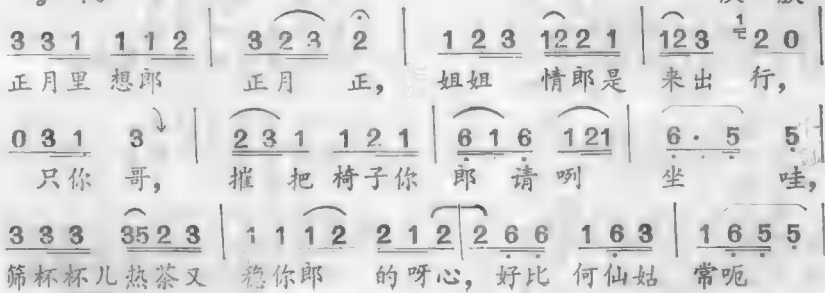 3 3 1 1 1 2 | 3 2 3 2 | 1 2 3 12 2 1 | 12 3 1 2 0 |
正月里 想郎 正月 正， 姐姐 情郎是 来出 行，
0 3 1 3 | 2 3 1 1 2 1 | 6 1 6 1 2 1 | 6 · 5 5
只你 哥， 摧 把 椅子你 郎 请 咧 坐 哇，
3 3 3 35 2 3 | 1 1 1 2 2 1 2 | 2 6 6 1 6 3 | 1 6 5 5
筛杯杯儿热茶又 稳你郎 的呀心，好比 何仙姑 常呃